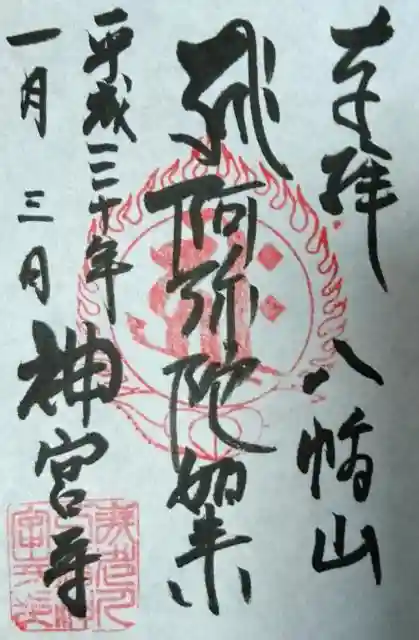 奉拝　八幡山
阿弥陀如来
平成三十年
一月三日　神宮寺